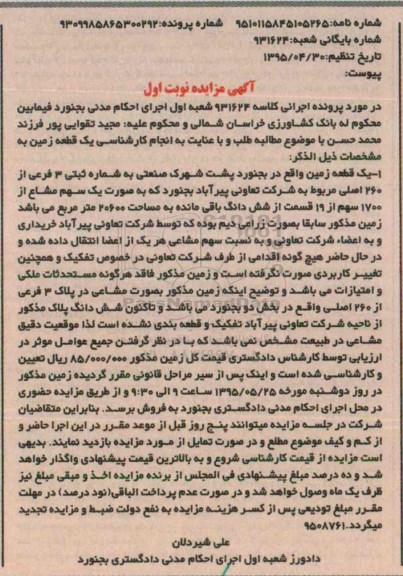 شماره نامه:۹۵۱۰۱۱۵۸۴۵۱۰۵۲۶۵ شماره پرونده:۹۳۰۹۹۸۵۸۶۵۳۰۰۲۹۲
شماره بایگانی شعبه:۹۳۱۶۲۴
تاریخ تنظیم:۱۳۹۵/۰۴/۳۰
پیوست:
آگهی مزایده نوبت اول
در مورد پرونده اجرائی کلاسه ۹۳۱۶۲۴ شعبه اول اجرای احکام مدنی بجنورد فیمابین
محکوم له بانک کشاورزی خراسان شمالی و محکوم علیه: مجید تقوایی پور فرزند
محمد حسن با موضوع مطالبه طلب و با عنایت به انجام کارشناسی یک قطعه زمین به
مشخصات ذیل الذکر:
۱-یک قطعه زمین واقع در بجنورد پشت شهرک صنعتی به شماره ثبتی ۳ فرعی از
۲۶۰ اصلی مربوط به شرکت تعاونی پیرآباد بجنورد که به صورت یک سهم مشاع از
۱۷۰۰ سهم از ۱۹ قسمت از شش دانگ باقی مانده به مساحت ۲۰۶۰۰ متر مربع می باشد
زمین مذکور سابقا بصورت زراعی دیم بوده که توسط شرکت تعاونی پیرآباد خریداری
و به اعضاء شرکت تعاونی و به نسبت سهم مشاعی هر یک از اعضا انتقال داده شده و
در حال حاضر هیچ گونه اقدامی از طرف شرکت تعاونی در خصوص تفکیک و همچنین
تغییر کاربردی صورت نگرفته است و زمین مذکور فاقد هرگونه مستحدثات ملکی
و امتیازات می باشد و توضیح اینکه زمین مذکور بصورت مشاعی در پلاک ۳ فرعی
از ۲۶۰ اصلی واقع در بخش دو بجنورد می باشد و تاکنون شش دانگ پلاک مذکور
از ناحیه شرکت تعاونی پیرآباد تفکیک و قطعه بندی نشده است لذا موقعیت دقیق
مشاعی در طبیعت مشخص نمی باشد که با در نظر گرفتن جمیع عوامل موثر در
ارزیابی توسط کارشناس دادگستری قیمت کل زمین مذکور ۸۵/۰۰۰/۰۰۰ ریال تعیین
و کارشناسی شده است و اینک پس از سیر مراحل قانونی مقرر گردیده زمین مذکور
در روز دوشنبه مورخه ۱۳۹۵/۰۵/۲۵ ساعت ۹ الی ۹:۳۰ و از طریق مزایده حضوری
در محل اجرای احکام مدنی دادگستری بجنورد به فروش برسد. بنابراین متقاضیان
شرکت در جلسه مزایده میتوانند پنج روز قبل از موعد مقرر در این اجرا حاضر و
از کم و کیف موضوع مطلع و در صورت تمایل از مورد مزایده بازدید نمایند. بدیهی
است مزایده از قیمت کارشناسی شروع و به بالاترین قیمت پیشنهادی واگذار خواهد
شد و ده درصد مبلغ پیشنهادی فی المجلس از برنده مزایده اخذ و مبقی مبلغ نیز
ظرف یک ماه وصول خواهد شد و در صورت عدم پرداخت الباقی(نود درصد) در مهلت
مقرر مبلغ تودیعی پس از کسر هزینه مزایده به نفع دولت ضبط و مزایده تجدید
میگردد.۹۵۰۸۷۶۱
علی شیردلان
دادورز شعبه اول اجرای احکام مدنی دادگستری بجنورد